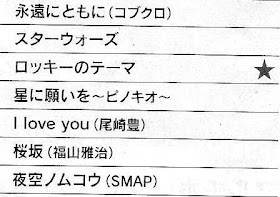 永遠にともに(コブクロ)
スターウォーズ
ロッキーのテーマ ★
星に願いを～ピノキオ～
I love you (尾崎豊)
桜坂(福山雅治)
夜空ノムコウ(SMAP)